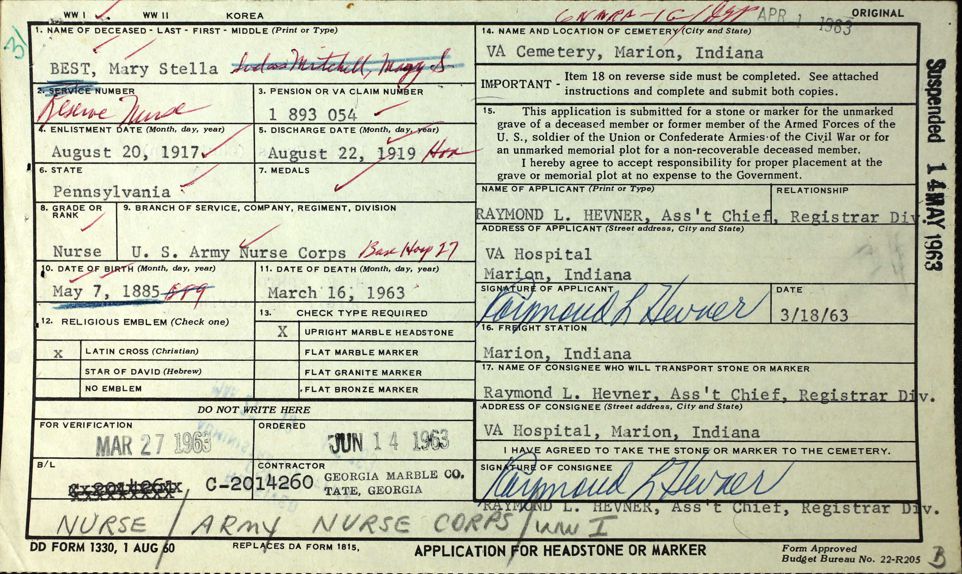 WW I WW II KOREA
APR 1 1963 ORIGINAL
31
1. NAME OF DECEASED - LAST - FIRST - MIDDLE (Print or Type)
BEST, Mary Stella
2. SERVICE NUMBER
Reserve Nurse
3. PENSION OR VA CLAIM NUMBER
1 893 054
4. ENLISTMENT DATE (Month, day, year)
August 20, 1917
5. DISCHARGE DATE (Month, day, year)
August 22, 1919 Hon
6. STATE
Pennsylvania
7. MEDALS
8. GRADE OR RANK
Nurse
9. BRANCH OF SERVICE, COMPANY, REGIMENT, DIVISION
U. S. Army Nurse Corps Base Hosp 27
10. DATE OF BIRTH (Month, day, year)
May 7, 1885
11. DATE OF DEATH (Month, day, year)
March 16, 1963
12. RELIGIOUS EMBLEM (Check one)
X LATIN CROSS (Christian)
STAR OF DAVID (Hebrew)
NO EMBLEM
13. CHECK TYPE REQUIRED
X UPRIGHT MARBLE HEADSTONE
FLAT MARBLE MARKER
FLAT GRANITE MARKER
FLAT BRONZE MARKER
DO NOT WRITE HERE
FOR VERIFICATION
MAR 27 1963
ORDERED
JUN 14 1963
B/L
C-2014260
CONTRACTOR
GEORGIA MARBLE CO.
TATE, GEORGIA
14. NAME AND LOCATION OF CEMETERY (City and State)
VA Cemetery, Marion, Indiana
IMPORTANT - Item 18 on reverse side must be completed. See attached
instructions and complete and submit both copies.
15. This application is submitted for a stone or marker for the unmarked
grave of a deceased member or former member of the Armed Forces of the
U. S., soldier of the Union or Confederate Armies of the Civil War or for
an unmarked memorial plot for a non-recoverable deceased member.
I hereby agree to accept responsibility for proper placement at the
grave or memorial plot at no expense to the Government.
NAME OF APPLICANT (Print or Type) RELATIONSHIP
RAYMOND L. HEVNER, Ass't Chief, Registrar Div.
ADDRESS OF APPLICANT (Street address, City and State)
VA Hospital
Marion, Indiana
SIGNATURE OF APPLICANT
Raymond L Hevner
DATE
3/18/63
16. FREIGHT STATION
Marion, Indiana
17. NAME OF CONSIGNEE WHO WILL TRANSPORT STONE OR MARKER
Raymond L. Hevner, Ass't Chief, Registrar Div.
ADDRESS OF CONSIGNEE (Street address, City and State)
VA Hospital, Marion, Indiana
I HAVE AGREED TO TAKE THE STONE OR MARKER TO THE CEMETERY.
SIGNATURE OF CONSIGNEE
Raymond L Hevner
RAYMOND L. HEVNER, Ass't Chief, Registrar Div.
Suspended 14 MAY 1963
NURSE / ARMY NURSE CORPS / WW I
DD FORM 1330, 1 AUG 60 REPLACES DA FORM 1815, APPLICATION FOR HEADSTONE OR MARKER
Form Approved
Budget Bureau No. 22-R205
B